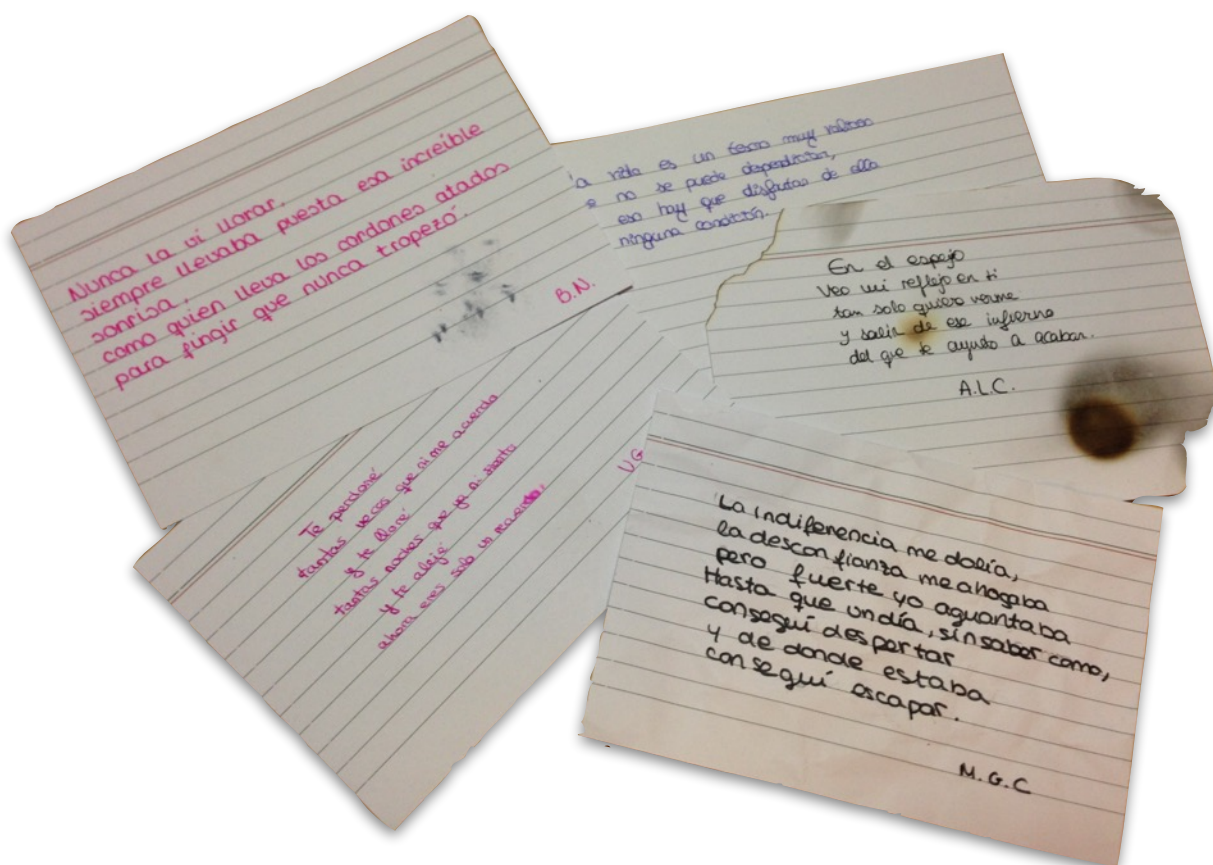 Nunca la vi llorar.
siempre llevaba puesta esa increíble
sonrisa,
como quien lleva los cordones atados
para fingir que nunca tropezó.
B.N.
a vida es un tesoro muy valioso
e no se puede desperdiciar,
eso hay que disfrutar de ella
ninguna condición.
En el espejo
Veo mi reflejo en ti
tan solo quiero verme
y salir de ese infierno
del que te ayudo a acabar.
A.L.C.
Te perdoné
tantas veces que ni me acuerdo
y te lloré
tantas noches que ya ni
y te alejé
ahora eres solo un
V.G
La indiferencia me dolía,
la desconfianza me ahogaba
pero fuerte yo aguantaba
Hasta que un día, sin saber como,
conseguí despertar
y de donde estaba
conseguí escapar.
M.G.C